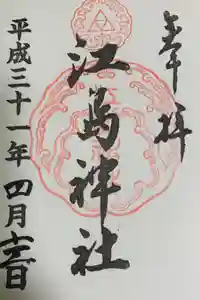 奉拝
江島神社
平成三十一年 四月 日